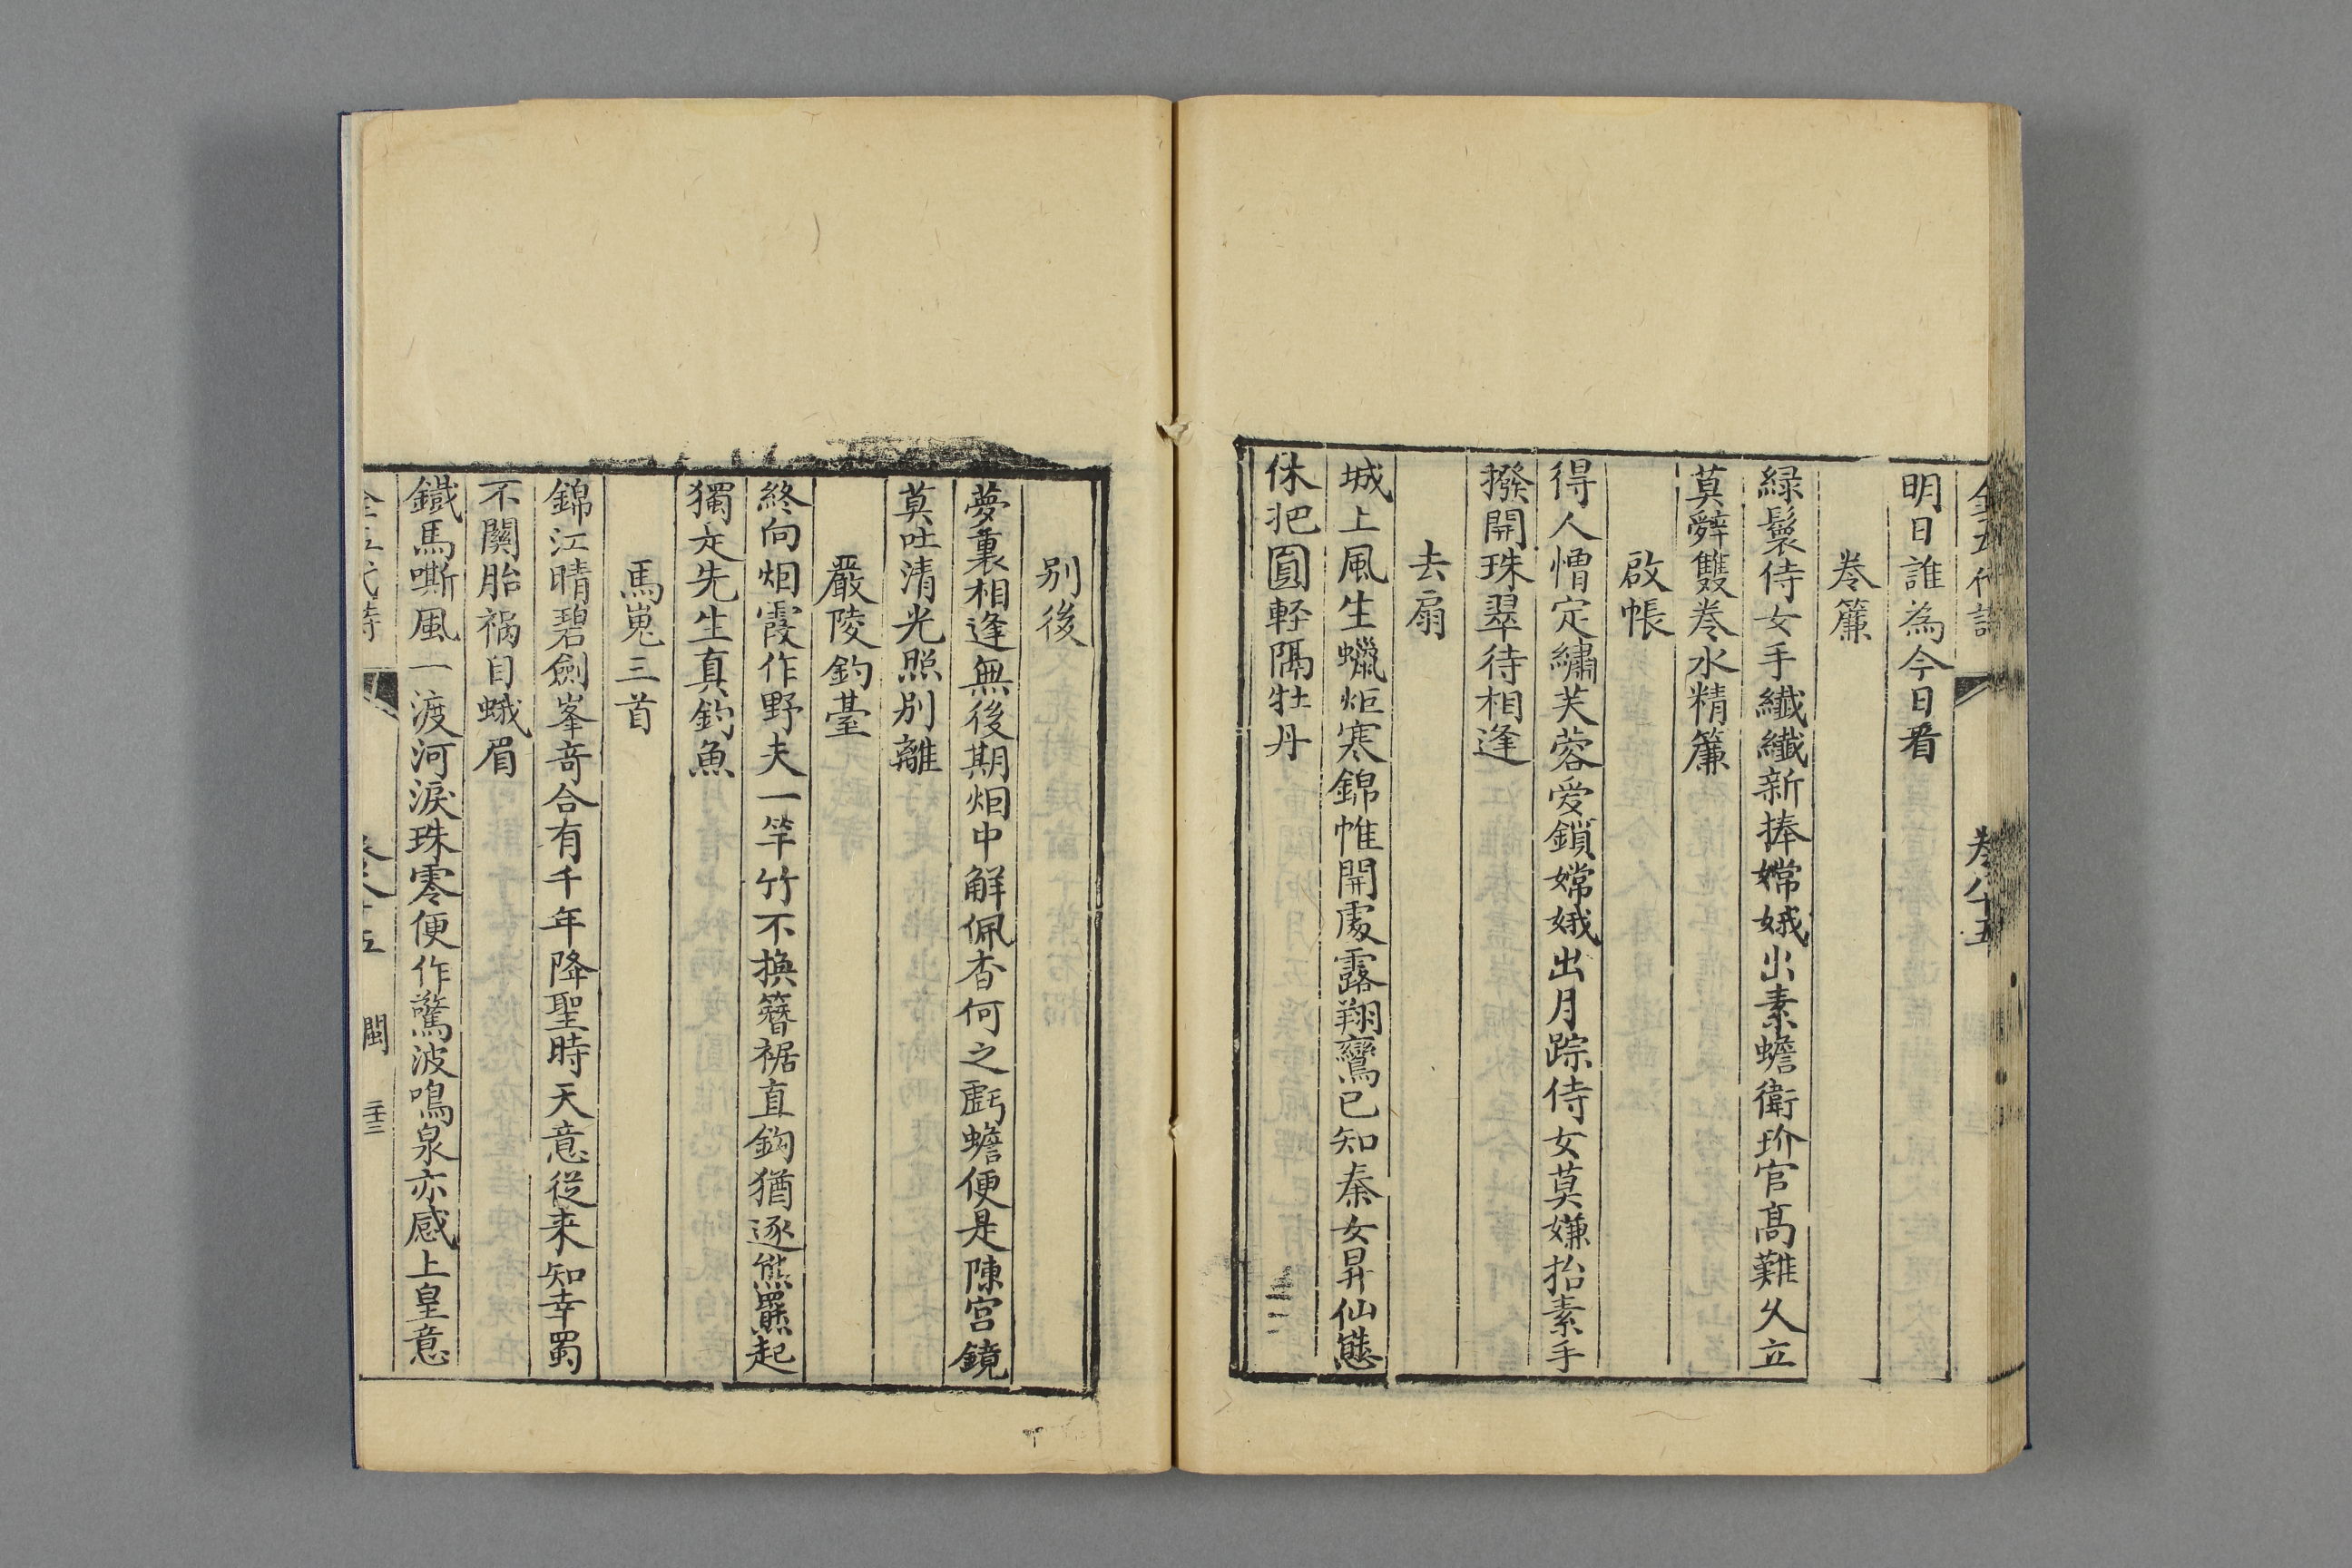 全五代詩 卷八十五
明日誰為今日看
卷簾
綠鬟侍女手纖纖新捧嫦娥出素蟾衛玠官高難久立
莫辤雙卷水精簾
啟帳
得人憎定繡芙蓉愛鎖嫦娥出月踪侍女莫嫌抬素手
撥開珠翠待相逢
去扇
城上風生蠟炬寒錦帷開處露翔鸞已知秦女昇仙態
休把圓輕隔牡丹
別後
夢裏相逢無後期烟中解佩杳何之虧蟾便是陳宮鏡
莫吐清光照別離
嚴陵釣臺
終向烟霞作野夫一竿竹不換簪裾直鈎猶逐熊羆起
獨是先生真釣魚
馬嵬三首
錦江晴碧劍峯奇合有千年降聖時天意從来知幸蜀
不關胎禍自蛾眉
鐵馬嘶風一渡河淚珠零便作驚波鳴泉亦感上皇意
全五代詩 卷八十五 閩 二十三